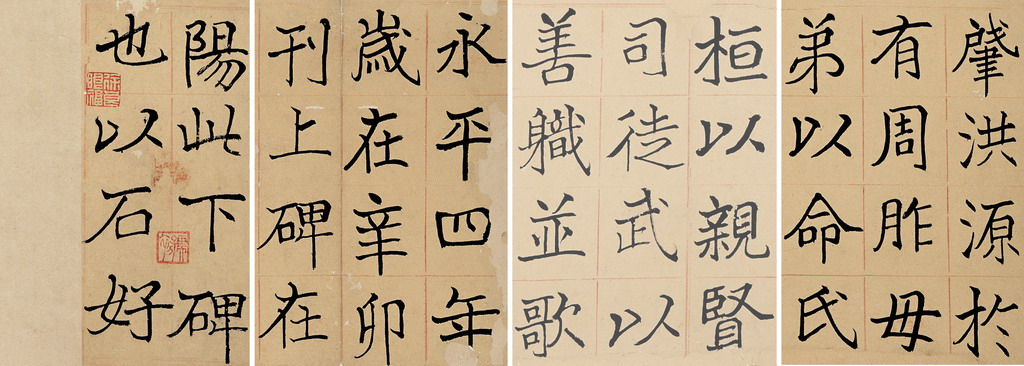 肇洪源於
有周胙毋
弟以命氏
桓以親賢
司徒武以
善軄並歌
永平四年
歲在辛卯
刊上碑在
陽此下碑
也以石好